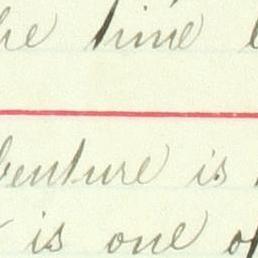 he time
benture is
is one of